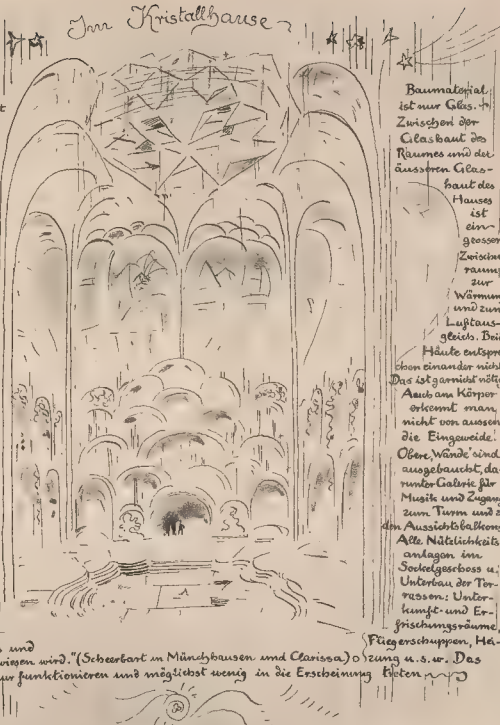 Im Kristallhause
Baumaterial
ist nur Glas.
Zwischen der
Glashaut des
Raumes und der
äusseren Glas-
haut des
Hauses
ist
ein
grosser
Zwischen
raum,
zur
Wärmun
und zum
Luftaus-
gleich. Bei
Häute entspre
chen einander nicht
Das ist garnicht nötig
Auch am Körper
erkennt man
nicht von aussen
die Eingeweide.
Obere „Wände“ sind
ausgebaucht, da
runter Galerie für
Musik und Zugang
zum Turm und z
den Aussichtsbalkons
Alle Nützlichkeits
anlagen im
Sockelgeschoss u.
Unterbau der Ter-
rassen: Unter-
kunft- und Er-
frischungsräume,
Fliegerschuppen, Hei-
und
wiesen wird." (Scheerbart in Münchhausen und Clarissa) zung u.s.w. Das
ur funktionieren und möglichst wenig in die Erscheinung treten